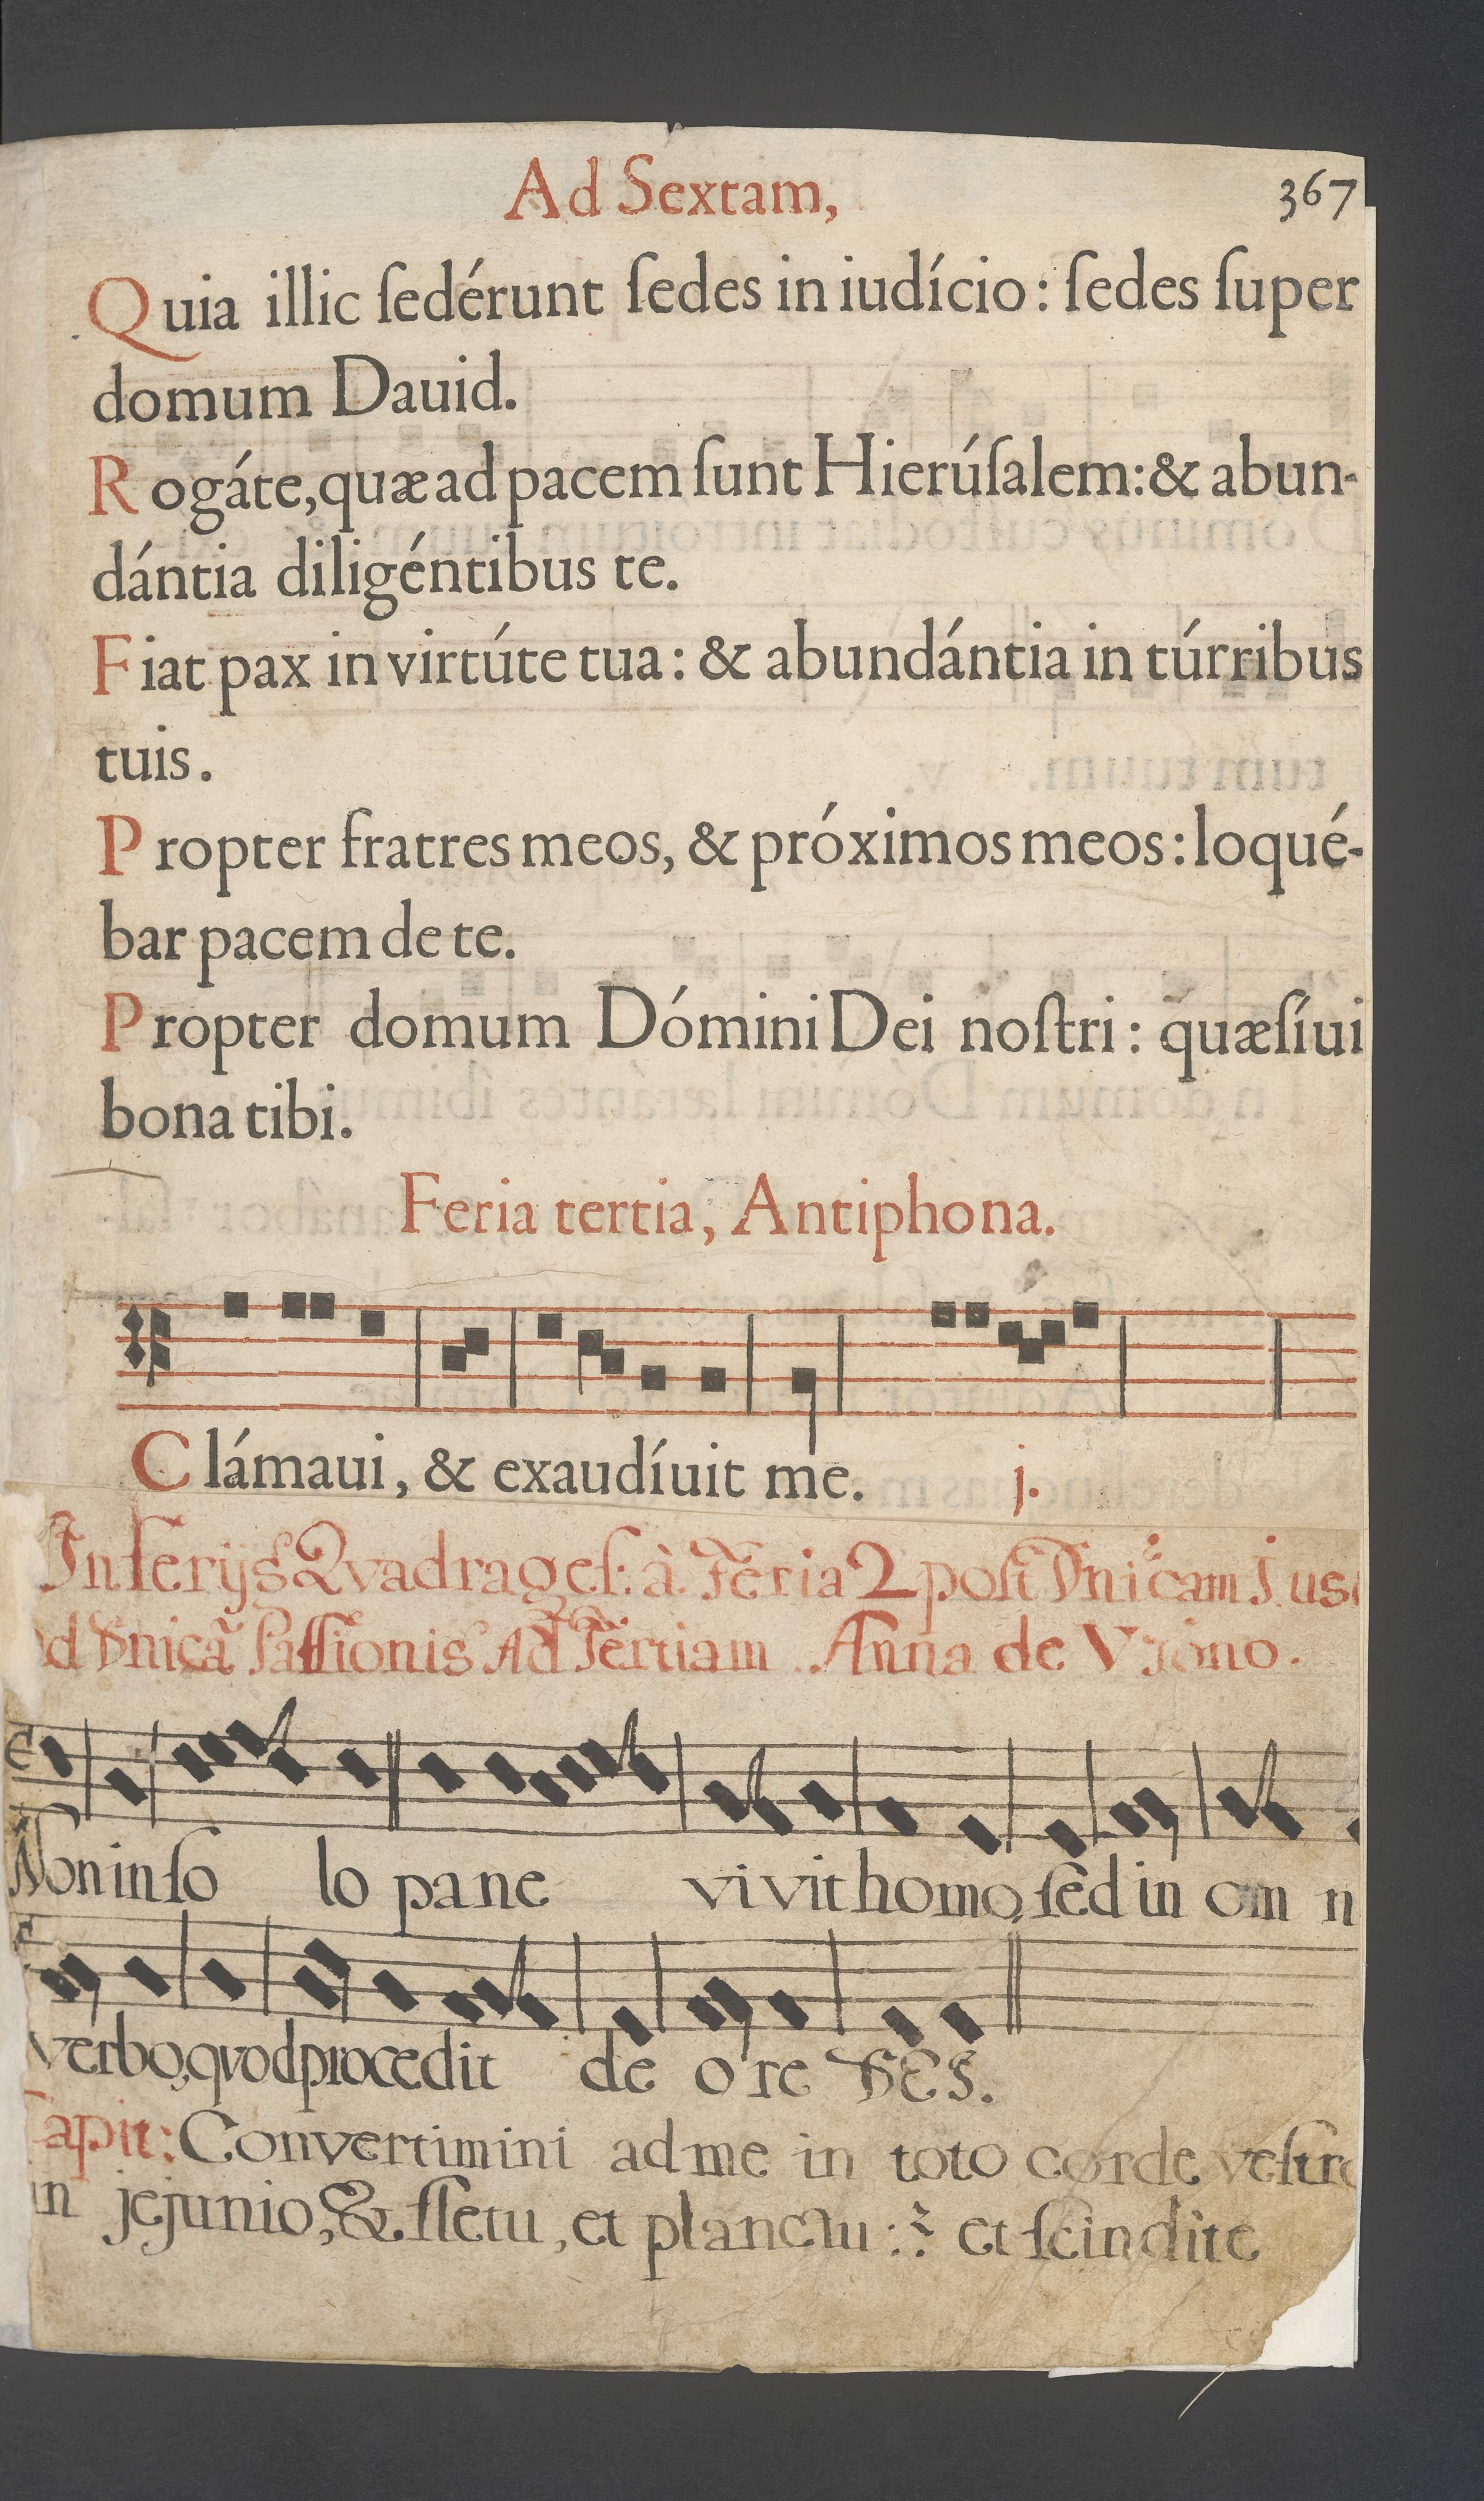 Ad Sextam,
367
Quia illic ſedérunt ſedes in iudício : ſedes ſuper
domum Dauid.
Rogáte, quæ ad pacem ſunt Hierúſalem: & abun-
dántia diligéntibus te.
Fiat pax in virtúte tua : & abundántia in túrribus
tuis.
Propter fratres meos, & próximos meos : loqué-
bar pacem de te.
Propter domum Dómini Dei noſtri : quæſíui
bona tibi.
Feria tertia, Antiphona.
Clámaui, & exaudíuit me. j.
In ferijs Qvadrageſ: à Feria 2 poſt Dnicam j us
d Dnicã Paſſionis Ad Tertiam Anna de
Non in ſo lo pane vivit homo, ſed in om n
verbo, qvod procedit de ore
apit: Convertimini ad me in toto corde veſtro
in jejunio, & fletu, et planctu : et ſcindite